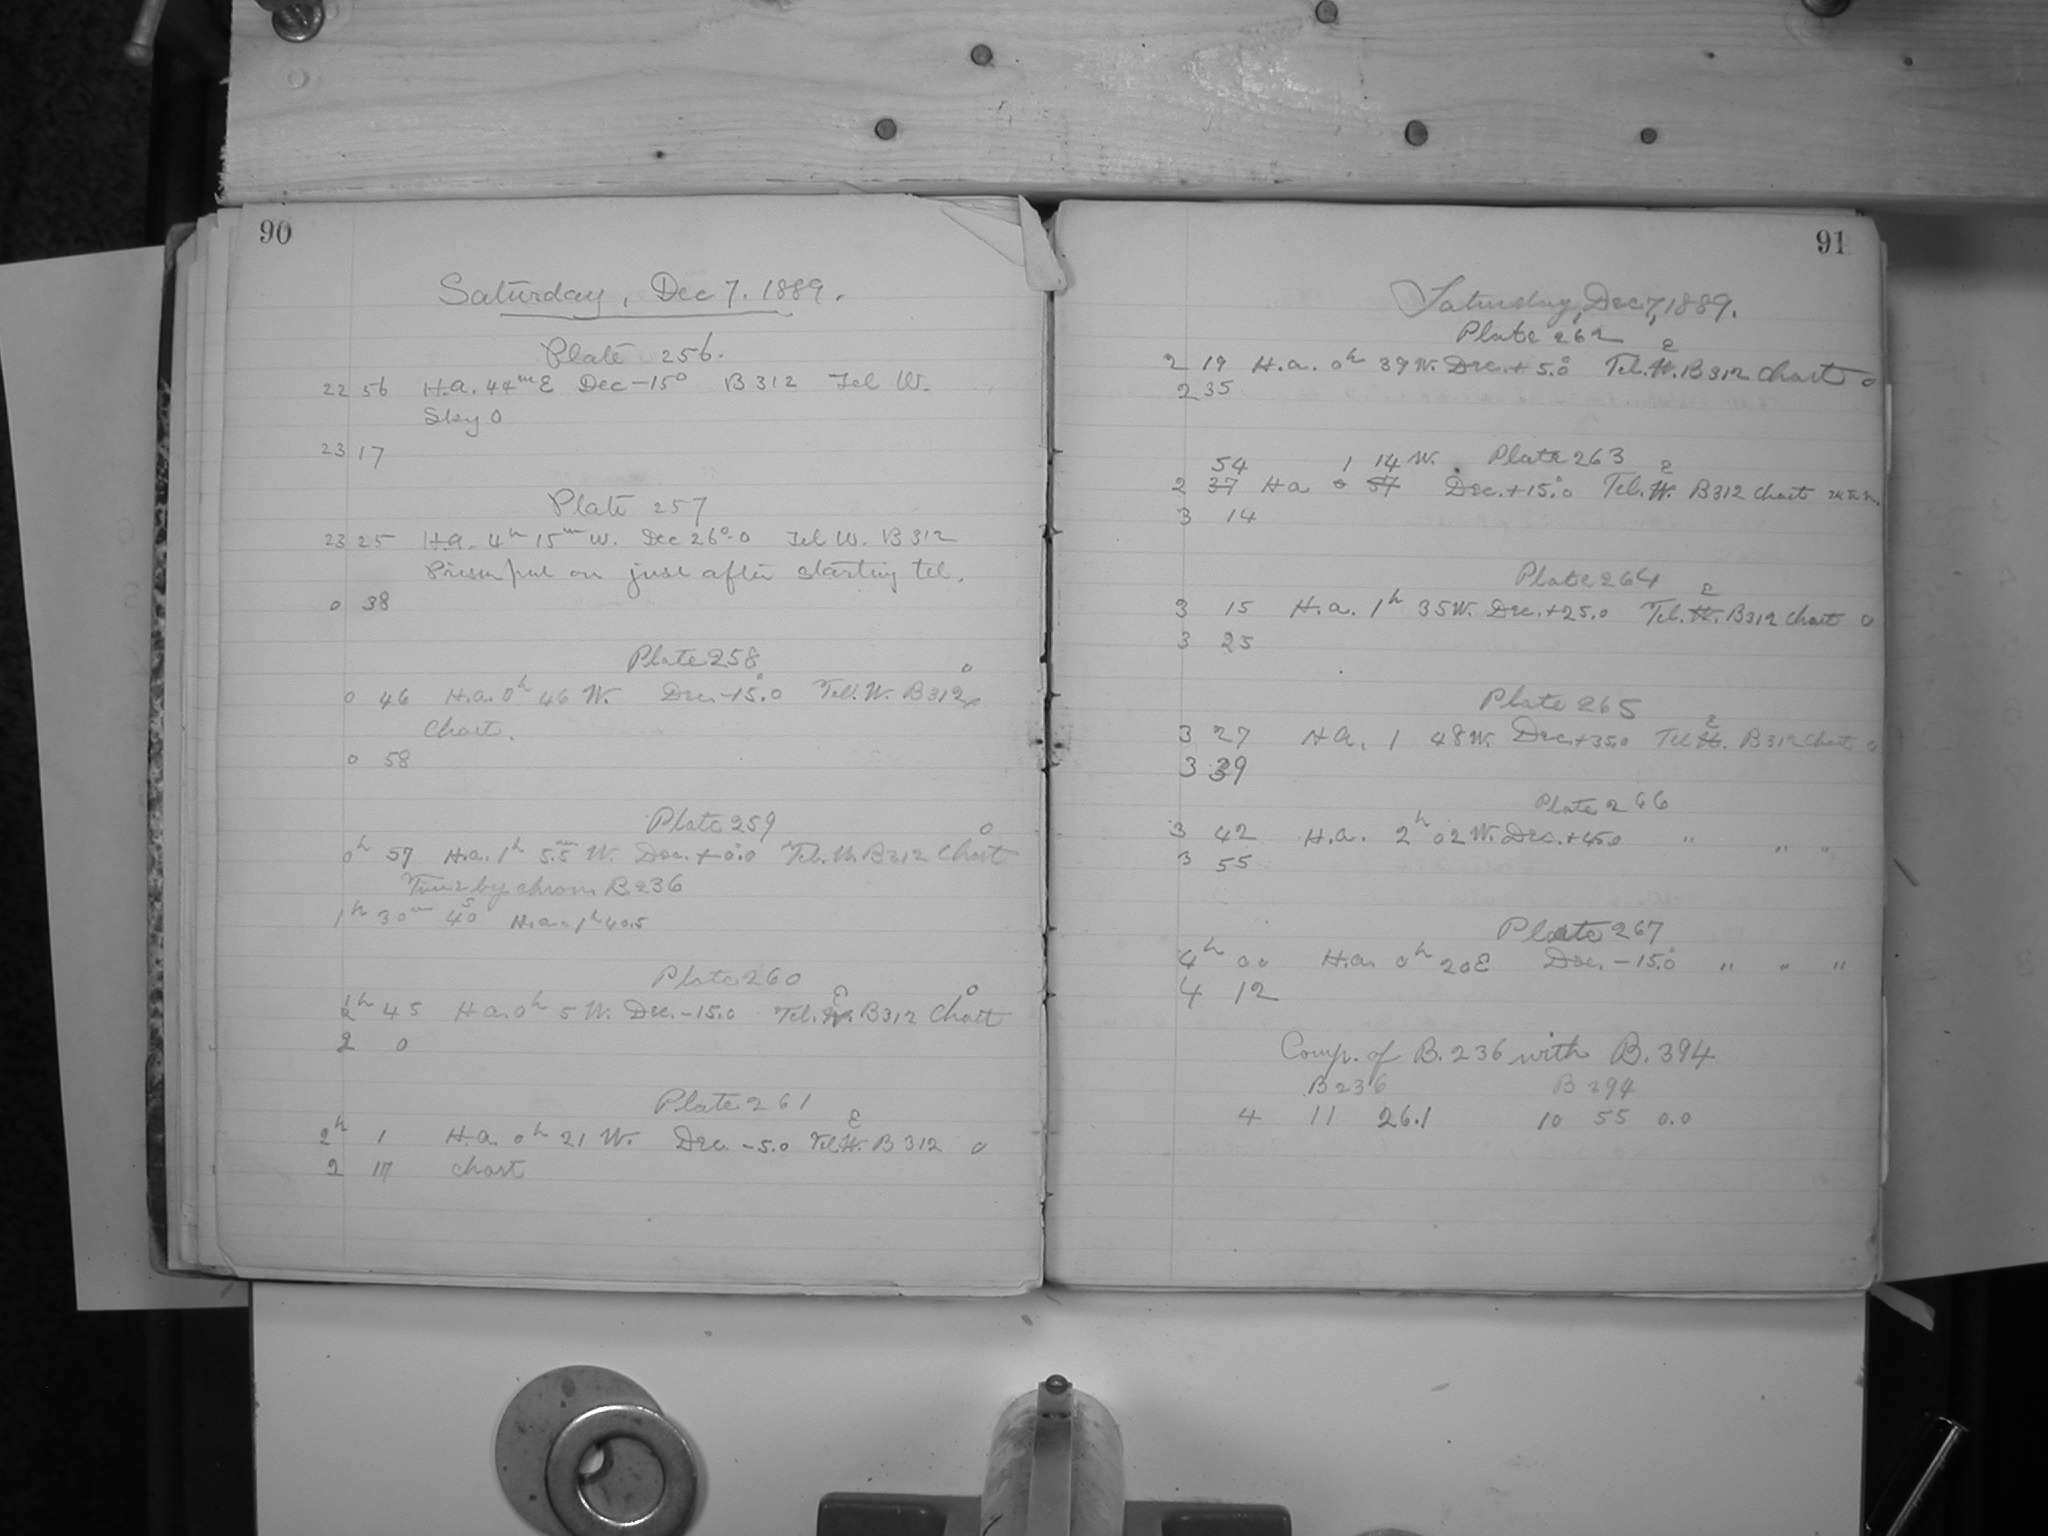 90
Saturday, Dec 7. 1889.
Plate 256.
22 56 H.a. 44m E Dec -15° B 312 Tel W.
Sky 0
23 17
Plate 257
23 25 H.a. 4h 15m W. Dec 26°.0 Tel W. B 312
Prism put on just after starting tel.
0 38
Plate 258
0 46 H.a. 0h 46 W. Dec. -15°.0 Tel. W. B 312 0
Chart.
0 58
Plate 259
0h 57 H.a. 1h 5.5m W. Dec. + 0°.0 Tel. W. B 312 Chart 0
Time by chron B. 236
1h 30m 40s H.a. = 1h 40.5
Plate 260
1h 45 H.a. 0h 5 W. Dec. -15.0 Tel. W. E B 312 Chart 0
2 0
Plate 261
2h 1 H.a. 0h 21 W. Dec. -5.0 Tel. W. E B 312 0
2 17 chart
91
Saturday, Dec 7, 1889.
Plate 262
2 19 H.a. 0h 39 W. Dec. + 5°.0 Tel. W. E B 312 Chart 0
2 35
54 1 14 W. Plate 263
2 37 H a 0 57 Dec. +15°.0 Tel. W. E B 312 Chart
3 14
Plate 264
3 15 H.a. 1h 35 W. Dec. +25.0 Tel. W. E B 312 Chart 0
3 25
Plate 265
3 27 H.a. 1 48 W. Dec. +35.0 Tel W. E B 312 Chart 0
3 39
Plate 266
3 42 H.a. 2h 02 W. Dec. +45.0 " " "
3 55
Plate 267
4h 00 H.a. 0h 20 E Dec. -15°.0 " " "
4 12
Comp. of B. 236 with B. 394
B 236 B 394
4 11 26.1 10 55 0.0